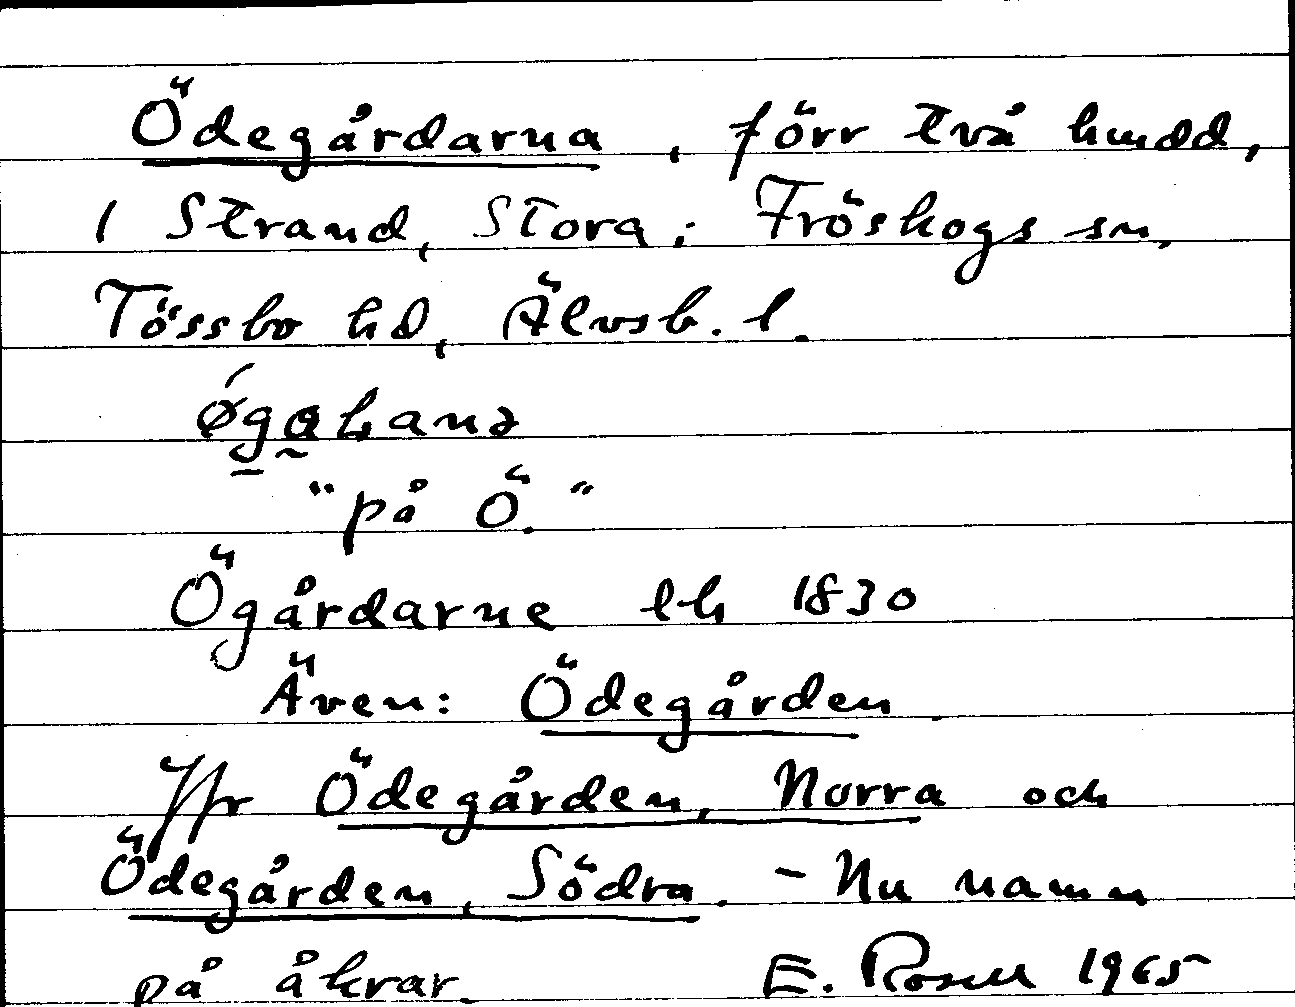 Ödegårdarna, förr två hmdd,
i Strand, Stora; Fröskogs sn,
Tössbo hd, Älvsb. l.
"på Ö."
Ögårdarne lh 1830
Även: Ödegården
Jfr Ödegården, Norra och
Ödegården, Södra. - Nu namn
på åkrar. E. Rosell 1965